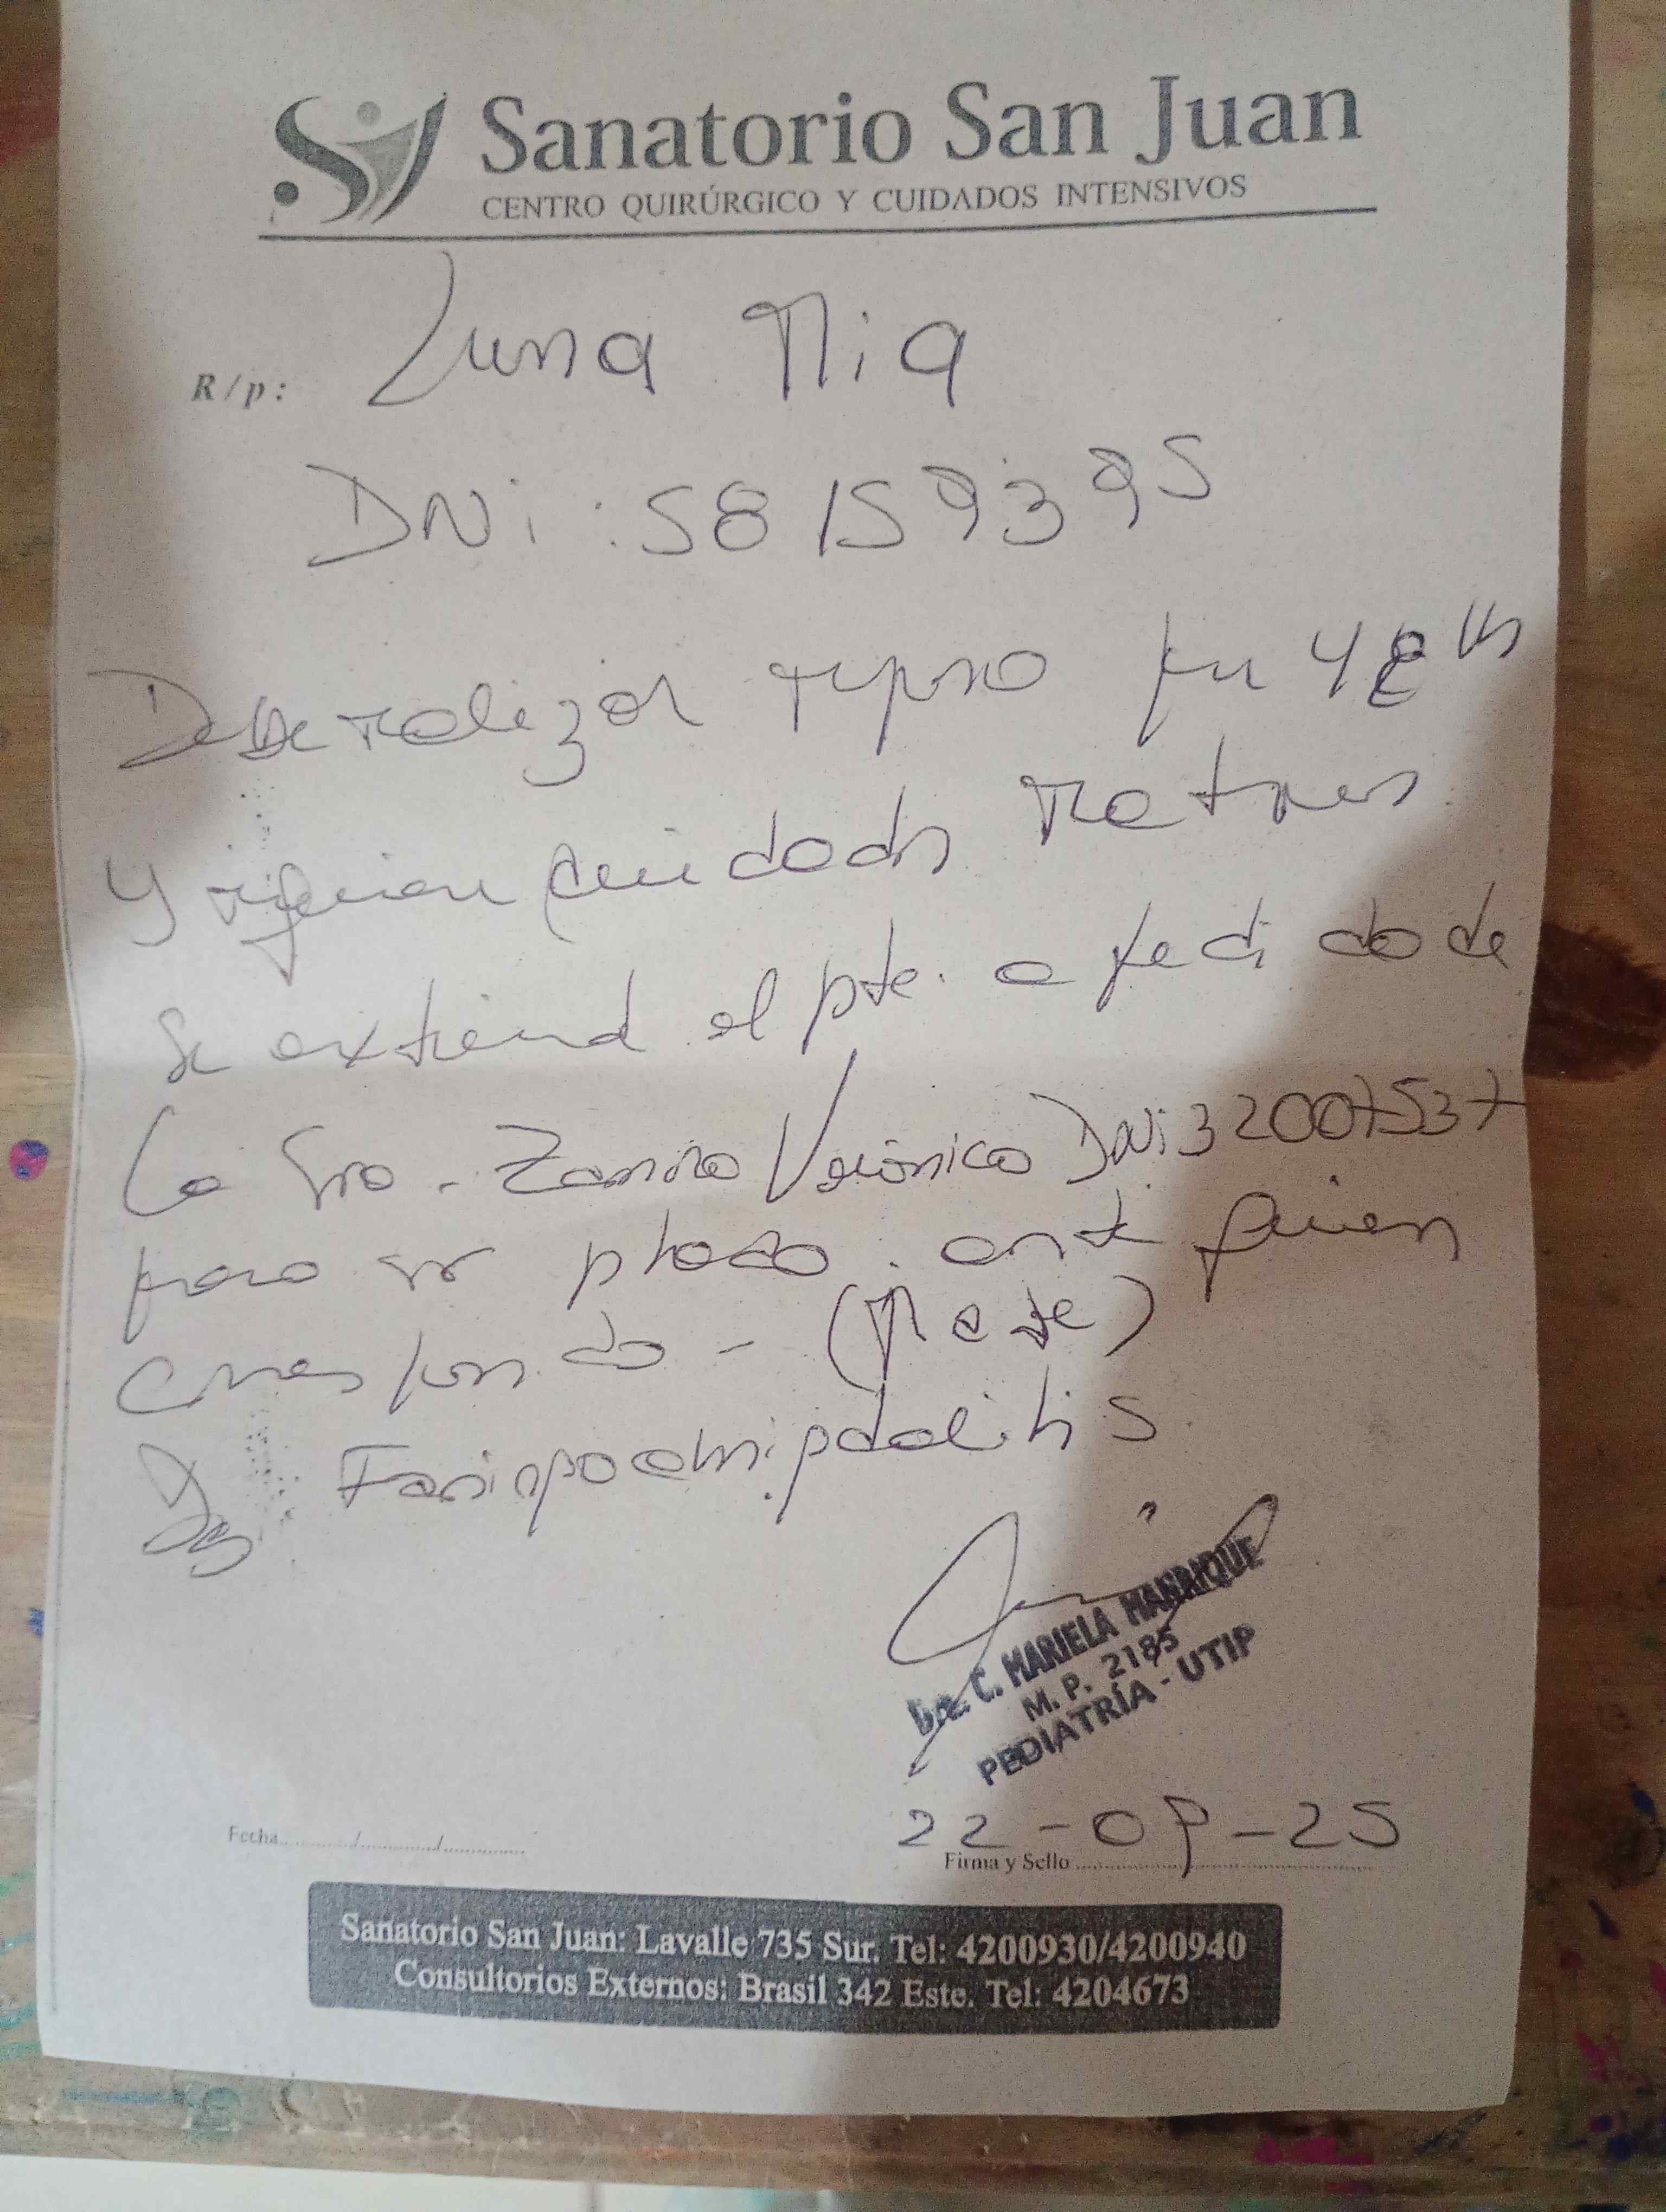 Sanatorio San Juan
CENTRO QUIRÚRGICO Y CUIDADOS INTENSIVOS
R/p: Luna Mia
DNi: 58159395
Debe realizar reposo por 48 hs
y requiere cuidados maternos
Se extiend el pte. a pedido de
La Sra. Zamora Verónica DNi 32007537
para ser ptado. ante quien
corresponda - (Madre)
Dg Faringoamigdalitis
Dra. C. MARIELA MANRIQUE
M. P. 2185
PEDIATRÍA - UTIP
22-09-25
Fecha ........../........../..........
Firma y Sello
Sanatorio San Juan: Lavalle 735 Sur. Tel: 4200930/4200940
Consultorios Externos: Brasil 342 Este. Tel: 4204673